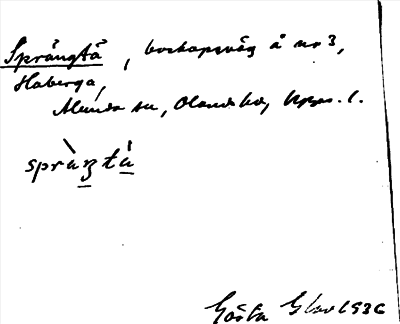 Språngtå, boskapsväg å nr 3,
Haberga,
Munda sn, Olands hd, Upps. l.
språŋtå
Gösta 1936